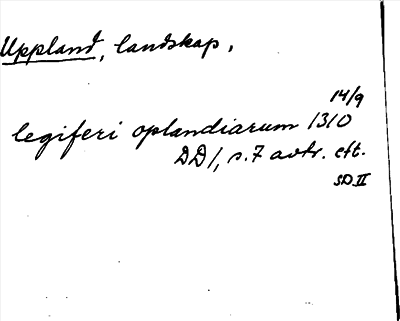 Uppland, landskap.
14/9
legiferi oplandiarum 1310
DD1, s. 7 avtr. eft.
SD II